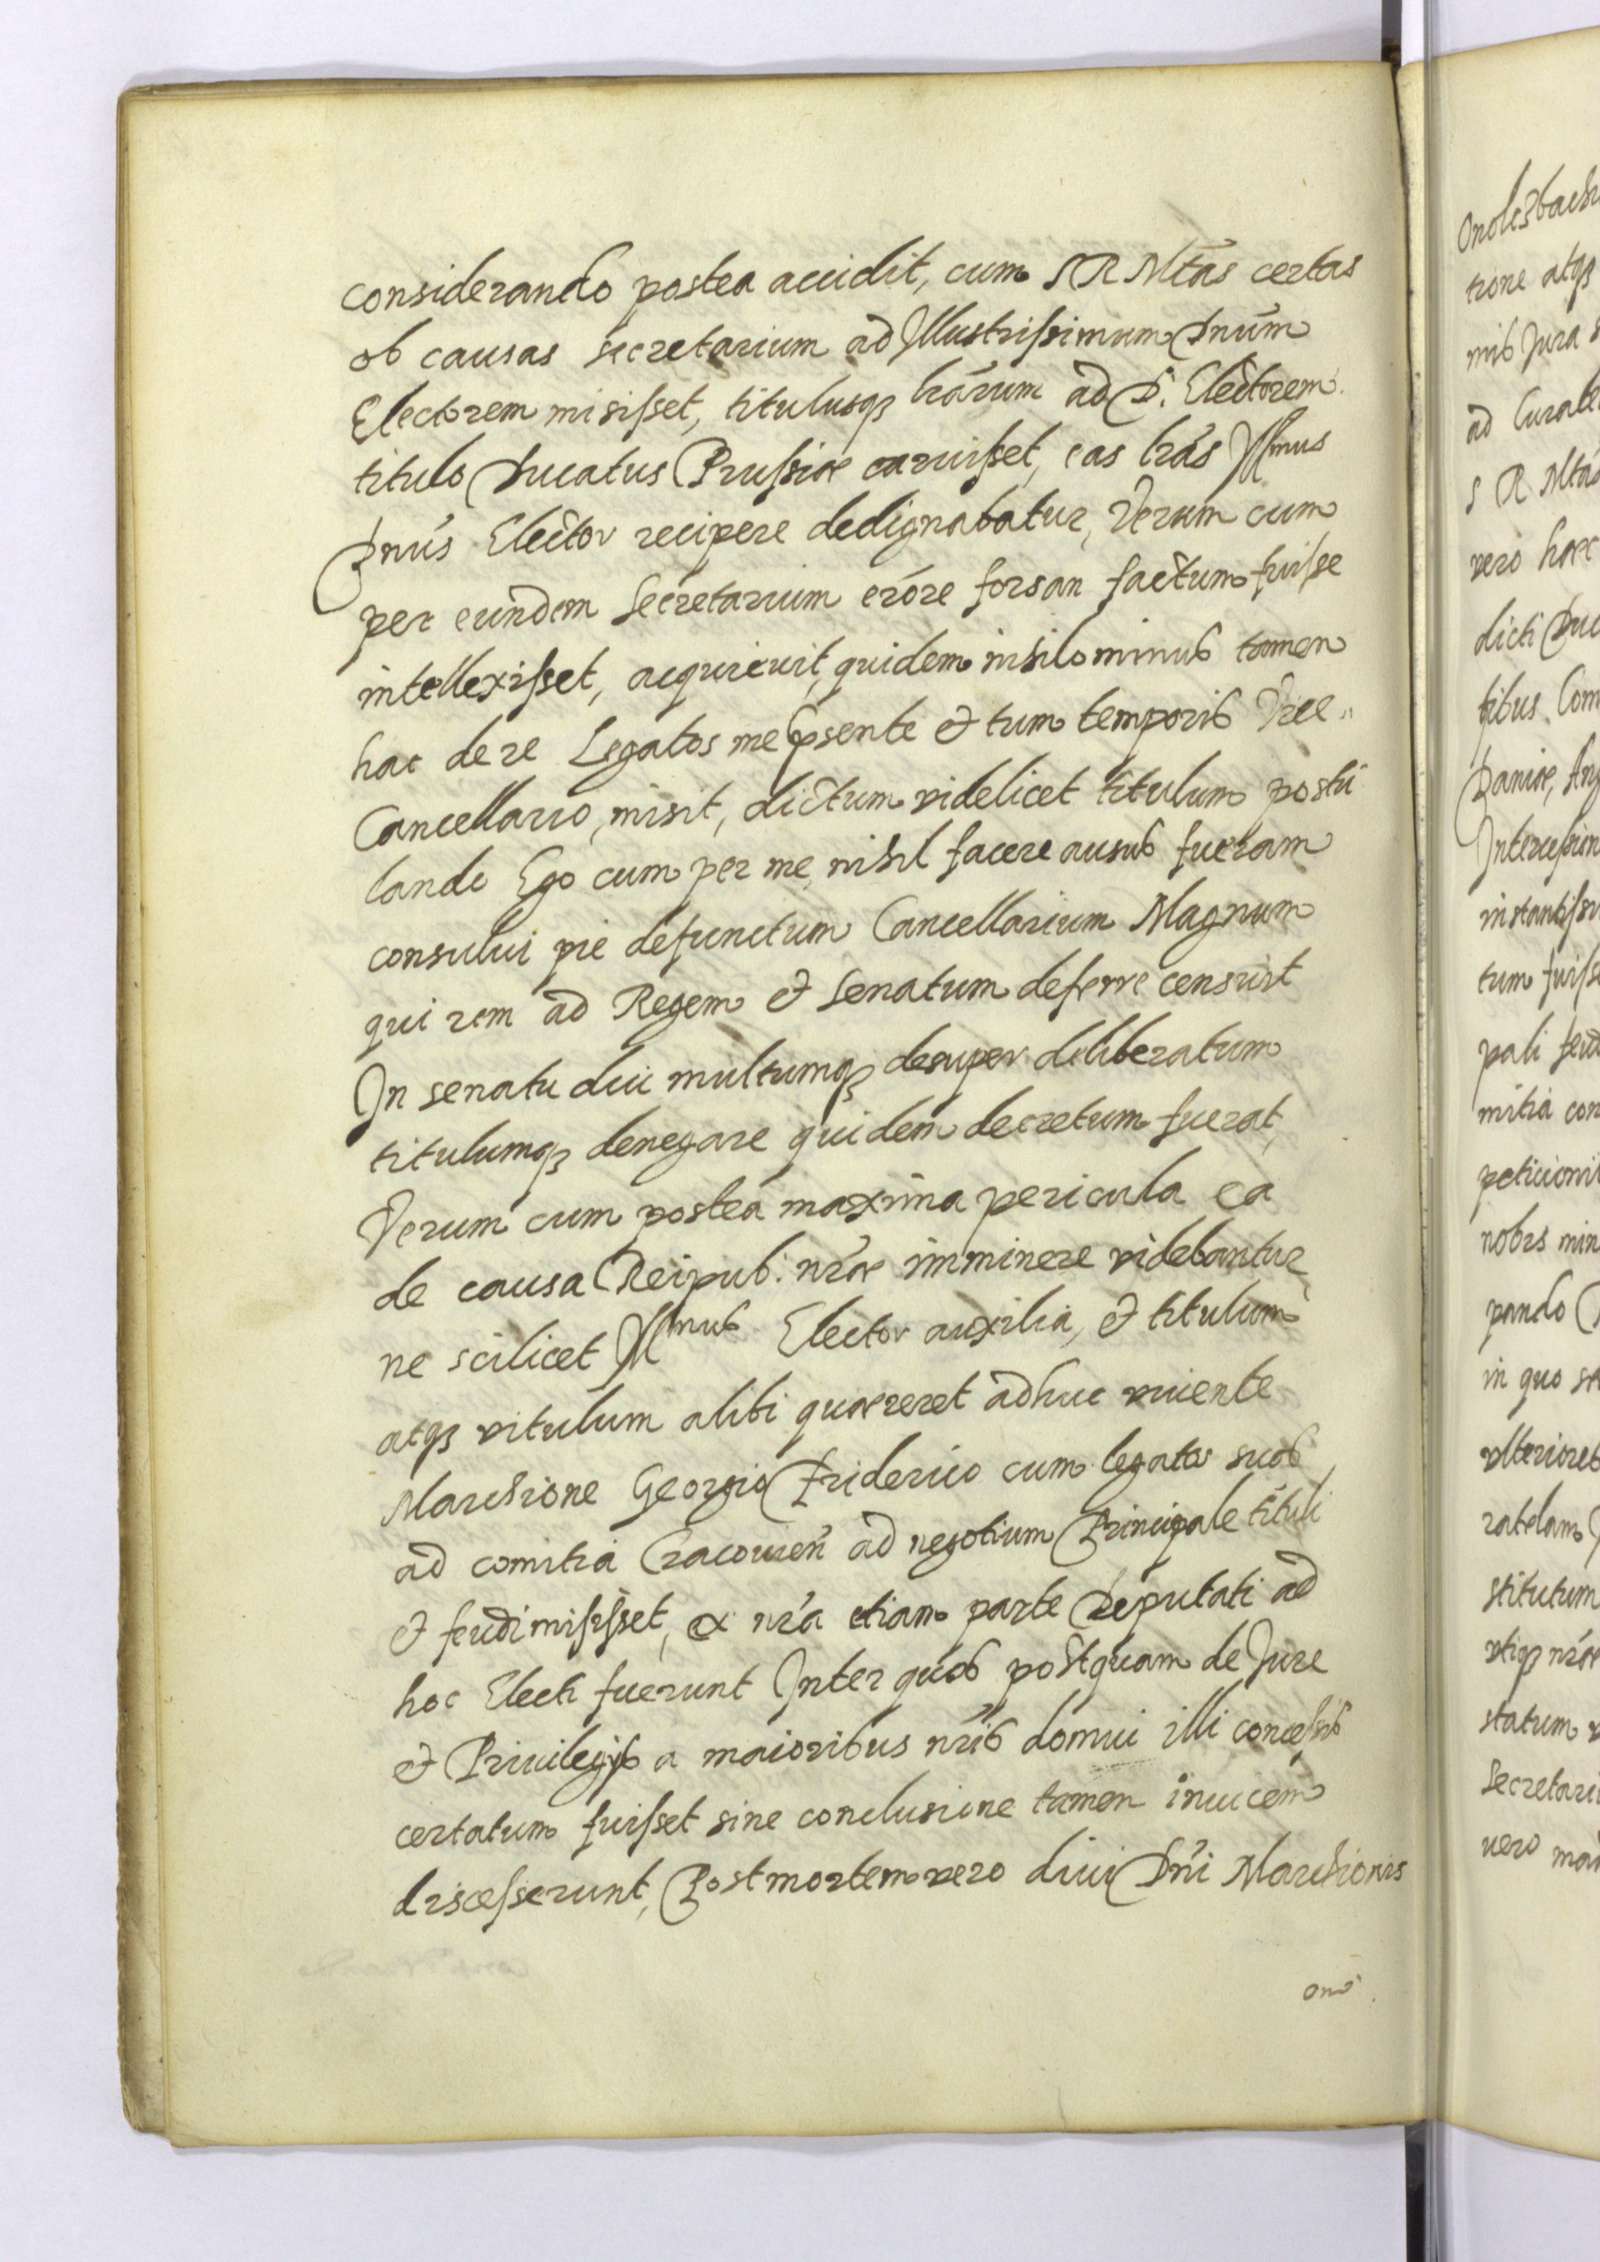 considerando postea accidit, cum S R Mtas certas
ob causas secretarium ad Illustrissimum Dnum
Electorem misisset, titulusq lrarum ad D. Electorem
titulo Ducatus Prussiae caruisset, eas lras Illmus
Dnus Elector recipere dedignabatur, Verum cum
per eundem Secretarium erore forsan factum fuisse
intellexisset, acquievit quidem nihilominus tamen
hac de re Legatos me psente et tum temporis Vice
Cancellario, misit, dictum videlicet titulum postu
lando Ego cum per me nihil facere ausus fueram
consului pie defunctum Cancellarium Magnum
qui rem ad Regem et Senatum deferre censuit
In senatu diu multumq desuper deliberatum
titulumq denegare quidem decretum fuerat,
Verum cum postea maxima pericula ea
de causa Reipub. nrae imminere videbantur
ne scilicet Illmus Elector auxilia, et titulum
atq vitulum alibi quaereret adhuc viuente
Marchione Georgio Friderico cum legatos suos
ad comitia Cracovien ad negotium Principale tituli
et feudi misisset, ex nra etiam parte Deputati ad
hoc Electi fuerunt Inter quos postquam de Jure
et Priuilegijs a maioribus nris domui illi concessis
certatum fuisset sine conclusione tamen inuicem
discesserunt, Post mortem vero diui Dni Marchionis
ono
Onolsbach
tione atq
mis Jura
ad Curate
S R Mtas
vero haec
dicti Duc
tibus Com
Daniae, Ang
Intercession
instantissi
tum fuisse
pali feud
mitia con
peticioni
nobis min
pando
in quo
vlteriores
ratelam
stitutum
vtiq nrae
statum
Secretari
vero man